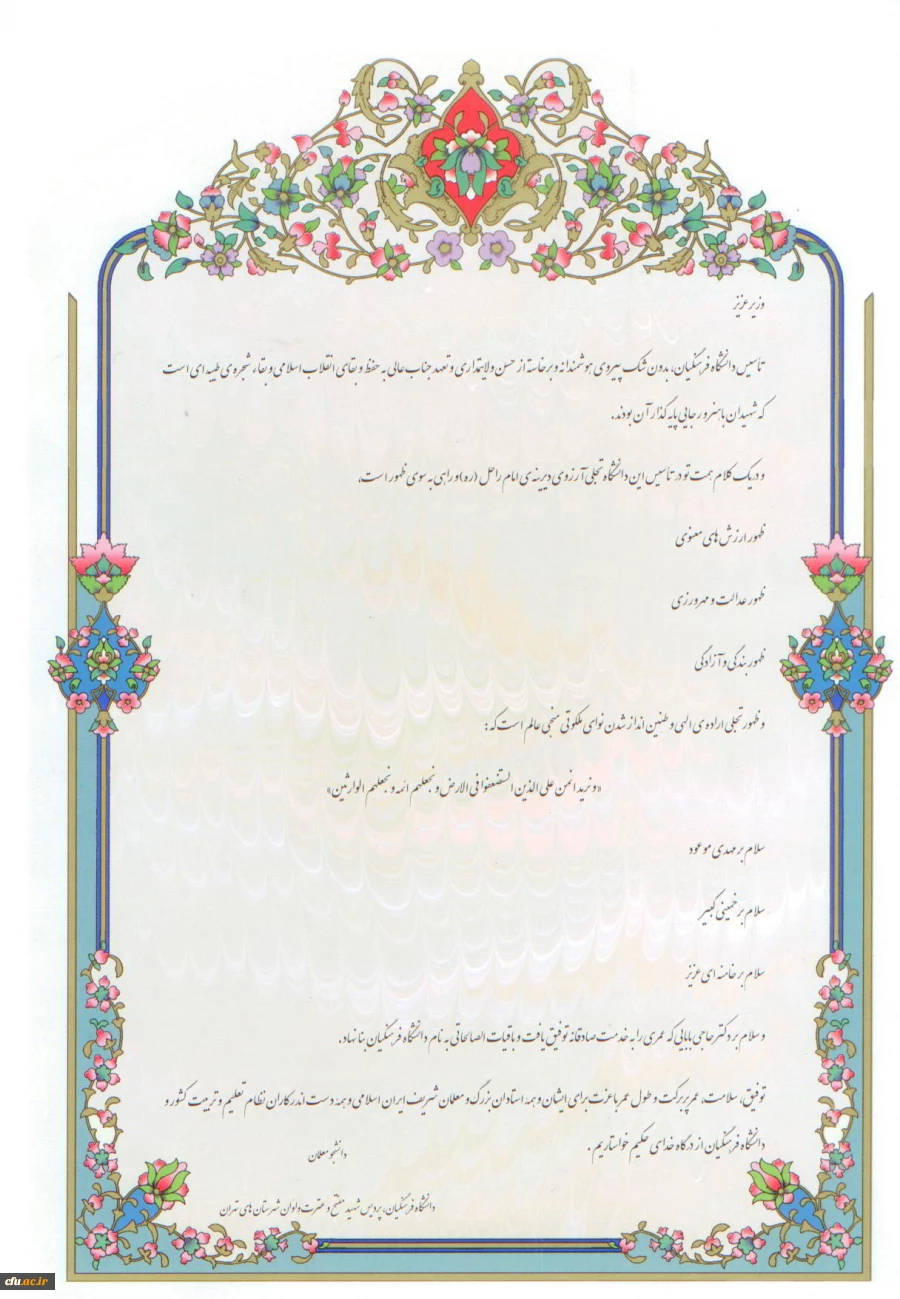 وزیر عزیز
تأسیس دانشگاه فرهنگیان، بدون شک پیروی هوشمندانه و برخاسته از حسن ولایتمداری و تعهد جناب عالی به حفظ و بقای انقلاب اسلامی و بقاء شجره ی طیبه ای است
که شهیدان باهنر و رجایی پایه گذار آن بودند.
و در یک کلام همت تو در تأسیس این دانشگاه تجلی آرزوی دیرینه ی امام راحل (ره) و راهی به سوی ظهور است،
ظهور ارزش های معنوی
ظهور عدالت و مهرورزی
ظهور بندگی و آزادگی
و ظهور تجلی اراده ی الهی و طنین انداز شدن نوای ملکوتی منجی عالم است که :
«و نرید انمن علی الذین الستضعفوا فی الارض و نجعلهم ائمه و نجعلهم الوارثین»
سلام بر مهدی موعود
سلام بر خمینی کبیر
سلام بر خامنه ای عزیز
و سلام بر دکتر حاجی بابایی که عمری را به خدمت صادقانه توفیق یافت و باقیات الصالحاتی به نام دانشگاه فرهنگیان بنا نهاد.
توفیق، سلامت، عمر پربرکت و طول عمر باعزت برای ایشان و همۀ استادان بزرگ و معلمان شریف ایران اسلامی و همۀ دست اندرکاران نظام تعلیم و تربیت کشور و
دانشگاه فرهنگیان از درگاه خدای حکیم خواستاریم .
دانشجو معلمان
دانشگاه فرهنگیان، پردیس شهید مفتح و حضرت ولی شهرستان های تهران
cfu.ac.ir